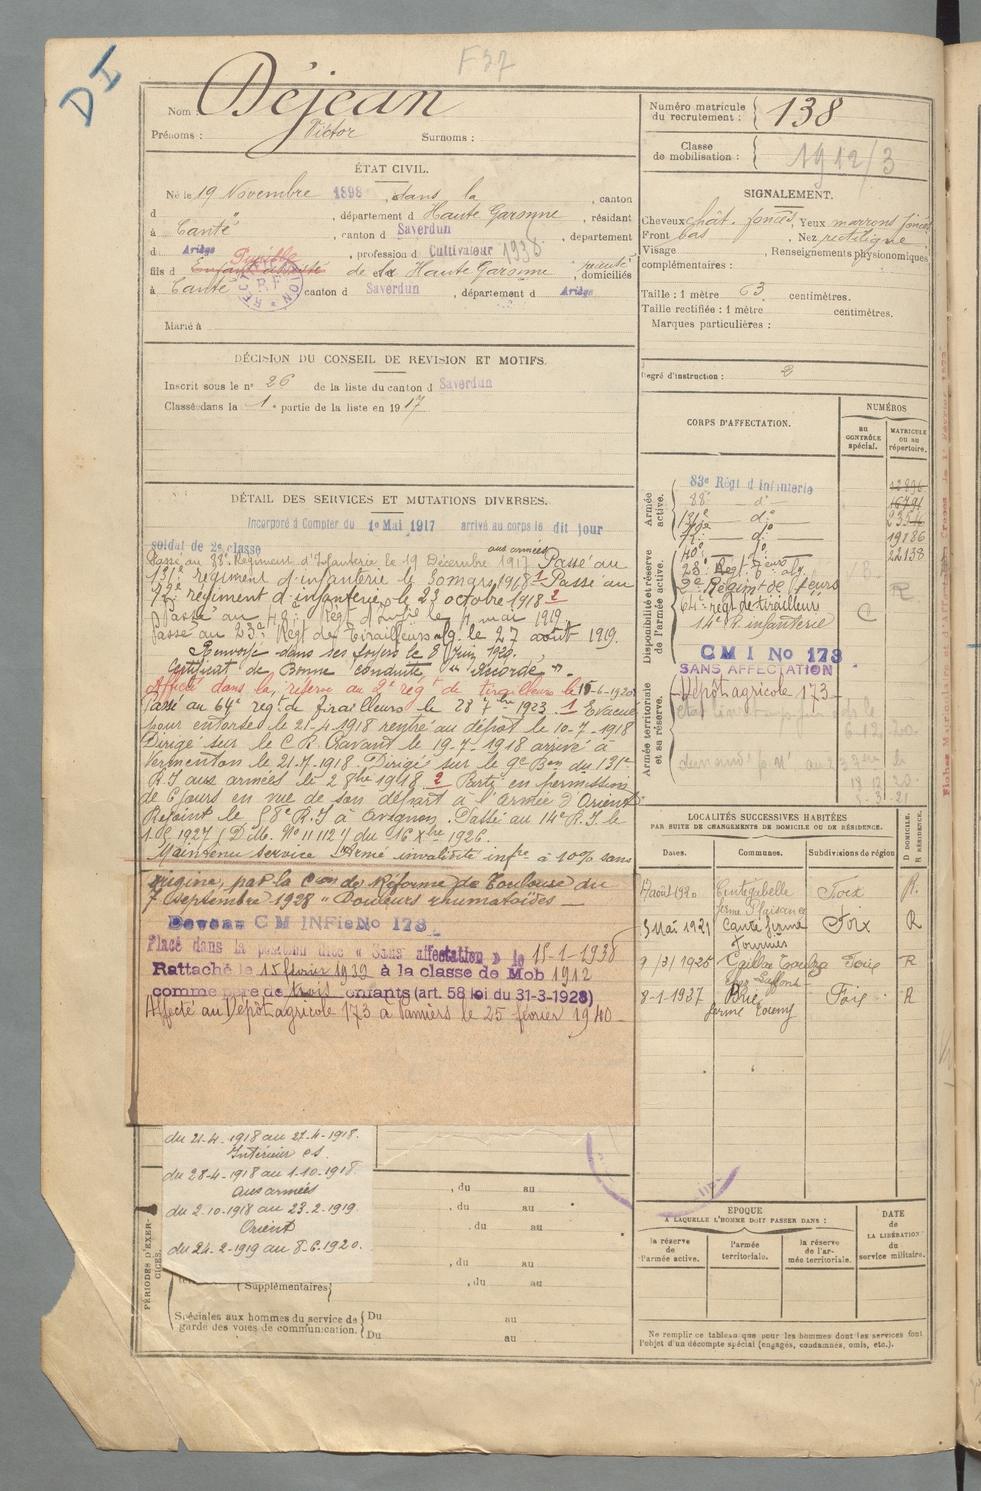 D I
F37
Nom : Déjean
Prénoms : Victor Surnoms :
Numéro matricule du recrutement : 138
Classe de mobilisation : 1912/3
ÉTAT CIVIL.
Né le 19 Novembre 1898, dans la, canton
d " , département d Haute Garonne, résidant
à Canté, canton d Saverdun, département
d Ariège, profession d Cultivateur 1938
Pupille
fils d Enfant assisté de la Haute Garonne, domiciliés
à Canté canton d Saverdun, département d Ariège
Marié à
SIGNALEMENT.
Cheveux chât. foncés, Yeux marrons foncés
Front bas, Nez rectiligne
Visage , Renseignements physionomiques
complémentaires :
Taille : 1 mètre 63 centimètres.
Taille rectifiée : 1 mètre centimètres.
Marques particulières :
Degré d'instruction : 2
DÉCISION DU CONSEIL DE REVISION ET MOTIFS.
Inscrit sous le n° 26 de la liste du canton d Saverdun
Classé dans la 1e partie de la liste en 1917
DÉTAIL DES SERVICES ET MUTATIONS DIVERSES.
Incorporé à Compter du 1er Mai 1917 arrivé au corps le dit jour
soldat de 2e classe
aux armées
Passé au 88e Régiment d'Infanterie le 19 Décembre 1917 Passé au
131e régiment d'infanterie le 30 mars 1918 1 Passé au
régiment d'infanterie le 23 octobre 1918 2
Passé au 40e Régt d'Inf. le 4 mai 1919
Passé au 23e Régt de Tirailleurs alg. le 27 août 1919.
Renvoyé dans ses foyers le 8 Juin 1920.
Certificat de Bonne conduite "Accordé"
Affecté dans la réserve au 2e régt de tirailleurs le 15-6-1920
Passé au 64e régt de tirailleurs le 28 7bre 1923. 1 Evacué
pour entorse le 21-4-1918 rentré au dépôt le 10-7-1918
Dirigé sur le C.R. Cravant le 19-7-1918 arrivé à
Vermenton le 21-7-1918. Dirigé sur le 9e Bon du 131e
R.I aux armées le 2 8bre 1918. 2 Parti en permission
de 6 jours en vue de son départ à l'armée d'Orient
Rejoint le 58e R.I à Avignon. Passé au 14e R.I. le
1927 (D.M. No 11112) du 16 Xbre 1926.
Maintenu service armé invalidité infre à 10% sans
origine, par la Con de Réforme de Toulouse du
7 Septembre 1928 "Douleurs rhumatoïdes"
Devenu C M INFie No 173
Placé dans la position dite « Sans affectation » le 15-1-1938
Rattaché le 15 février 1939 à la classe de Mob 1912
comme père de trois enfants (art. 58 loi du 31-3-1928)
Affecté au Dépôt agricole 173 à Pamiers le 25 février 1940
du 21-4-1918 au 27-4-1918.
Intérieur cs.
du 28-4-1918 au 1-10-1918.
Aux armées
du 2-10-1918 au 23-2-1919.
Orient
du 24-2-1919 au 8-6-1920.
PÉRIODES D'EXERCICES.
, du au
, du au
, du au
, du au
, du au
(Supplémentaires)
Spéciales aux hommes du service de garde des voies de communication.
Du au
Du au
CORPS D'AFFECTATION.
NUMÉROS
au CONTRÔLE spécial.
MATRICULE ou au répertoire.
Armée active.
83e Régt d'Infanterie 12896
88e — do — 16791
131e — do 2354
do 19186
40e do 22138
Disponibilité et réserve de l'armée active.
23e Régt Tirailleurs alg.
2e Régiment de tirailleurs R
64e régt de tirailleurs C
14e R. infanterie
C M I No 173
SANS AFFECTATION
Dépôt agricole 173
Armée territoriale et sa réserve.
LOCALITÉS SUCCESSIVES HABITÉES
PAR SUITE DE CHANGEMENTS DE DOMICILE OU DE RÉSIDENCE.
Dates. Communes. Subdivisions de région D DOMICILE. R RÉSIDENCE.
août 1920 Cintegabelle ferme Plaisance Foix R.
3 Mai 1921 Canté ferme Fournier Foix R
9/3/1925 Foix R
8-1-1937 Brie ferme Foix R
EPOQUE
A LAQUELLE L'HOMME DOIT PASSER DANS :
la réserve de l'armée active.
l'armée territoriale.
la réserve de l'armée territoriale.
DATE de LA LIBÉRATION du service militaire.
Ne remplir ce tableau que pour les hommes dont les services font
l'objet d'un décompte spécial (engagés, condamnés, omis, etc.).